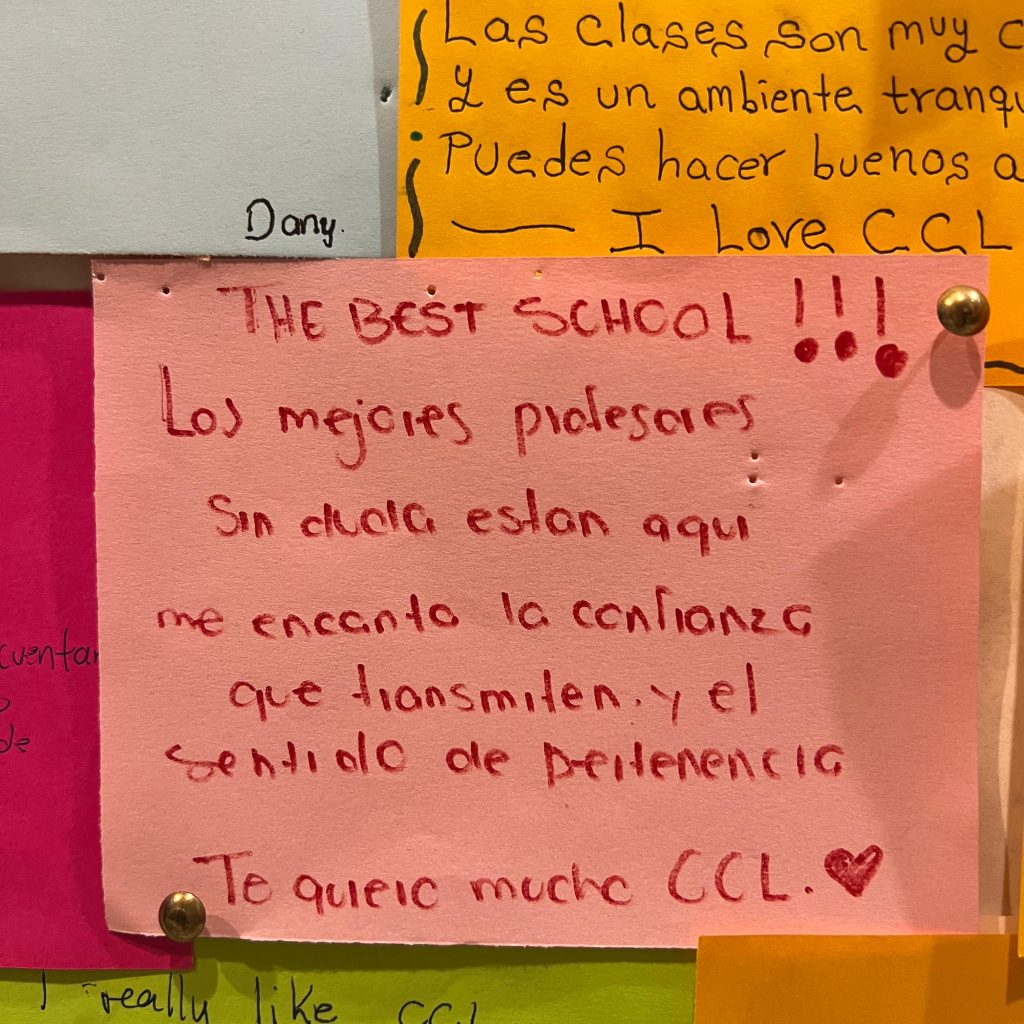 Las clases son muy c
y es un ambiente tranqu
Puedes hacer buenos a
I Love CCL
Dany.
THE BEST SCHOOL !!!
Los mejores profesores
Sin duda estan aqui
me encanta la confianza
que transmiten. y el
sentido de pertenencia
Te quiero mucho CCL. ♥
cuentan
o
de
I really like CCL